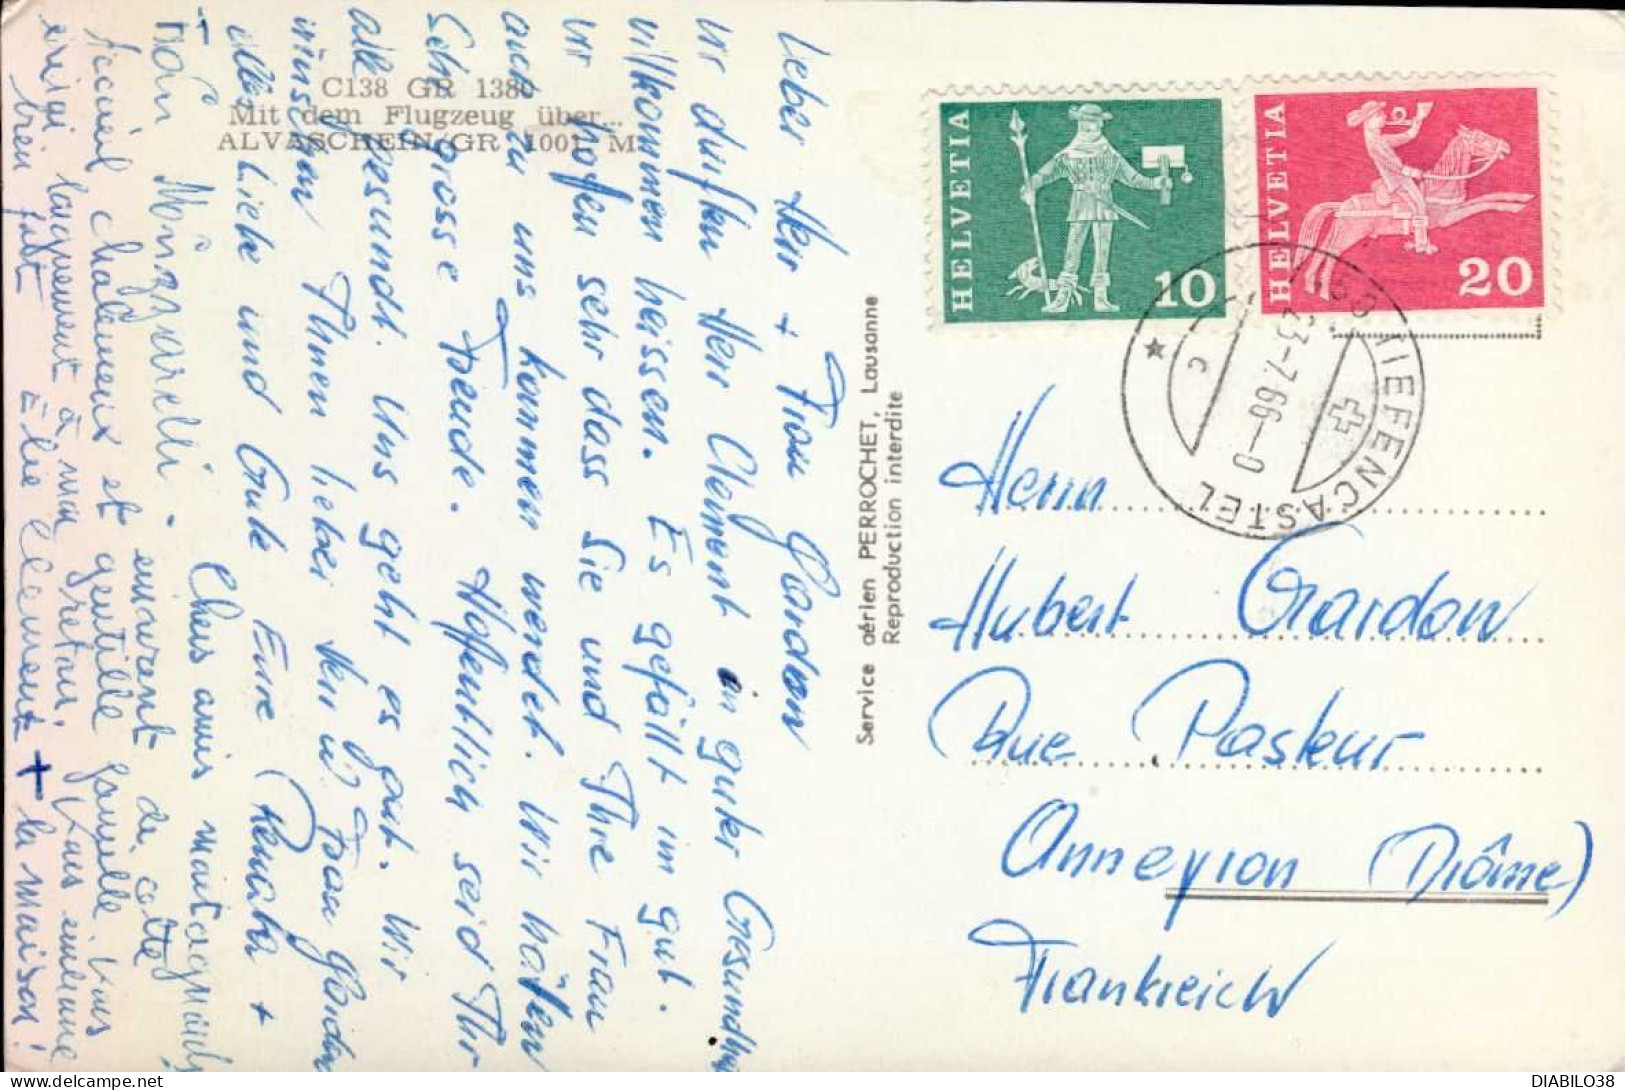 C138 GR 1380
Mit dem Flugzeug über...
ALVASCHEIN/GR 1001 M
Lieber Herr + Frau Gardon
Wir durften Herr Clement in guter Gesundheit
willkommen heissen. Es gefällt im gut.
Wir hoffen sehr dass Sie und Ihre Frau
auch zu uns kommen werdet. Wir hätten
sehr grosse Freude. Hoffentlich seid Ihr
alle Gesundt. Uns geht es gut. Wir
wünschen Ihnen lieber Herr u. Frau Gardon
alles Liebe und Gute Eure Renata +
Noån Minzarelli.
Chers amis montagnards
enivrant de cette
accueil chaleureux et gentille famille vous
languement à mon retour. Vous
bien fait Elie Clement + la maison!
Service aérien PERROCHET, Lausanne
Reproduction interdite
HELVETIA
10
HELVETIA
20
TIEFENCASTEL
23-7.66-0
Herrn
Hubert Gardon
Rue Pasteur
Anneyron (Drôme)
Frankreich
DIABILO38